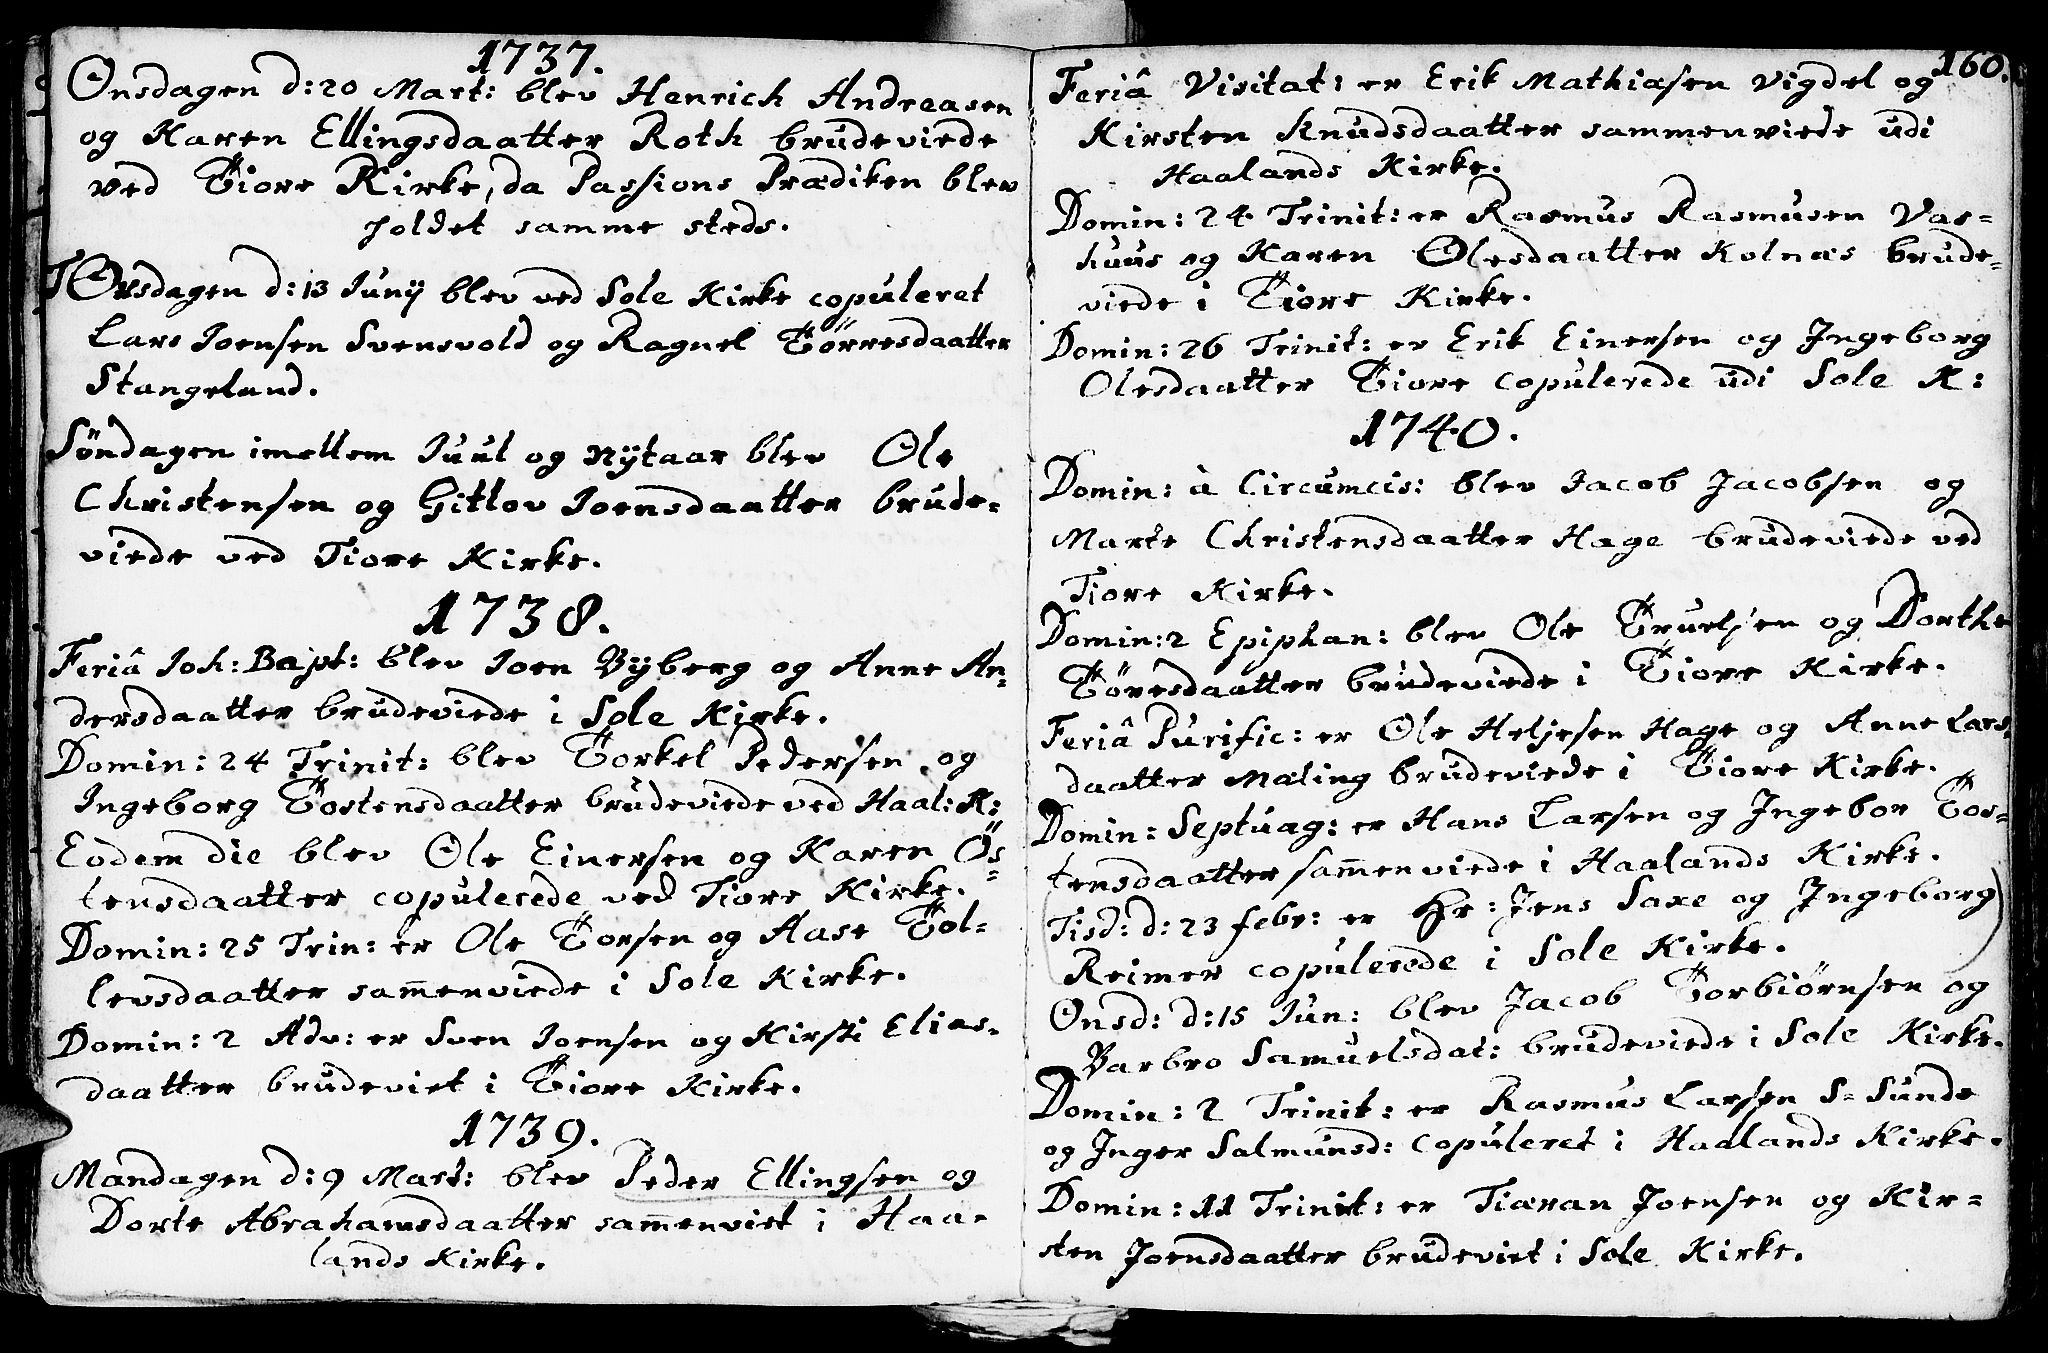 1737.
Onsdagen d: 20 Mart: blev Henrich Andreasen
og Karen Ellingsdaatter Roth brudeviede
ved Tiore Kirke, da Passions Prædiken blev
holdet samme steds.
TOrsdagen d: 13 Junij blev ved Sole Kirke copuleret
Lars Joensen Svensvold og Ragnel Törresdaatter
Stangeland.
Söndagen imellem Juul og Nytaar blev Ole
Christensen og Gitlov Joensdaatter brude-
viede ved Tiore Kirke.
1738.
Feriâ Joh: Bapt: blev Joen Vyberg og Anne An-
dersdaatter brudeviede i Sole Kirke.
Domin: 24 Trinit: blev Torkel Pedersen og
Ingeborg Tostensdaatter brudeviede ved Haal: K:
Eodem die blev Ole Einersen og Karen Ös-
tensdaatter copulerede ved Tiore Kirke.
Domin: 25 Trin: er Ole Torsen og Aase Tol-
levsdaatter sam̄enviede i Sole Kirke.
Domin: 2 Adv: er Sven Joensen og Kirsti Elias-
daatter brudeviet i Tiore Kirke.
1739.
Mandagen d: 9 Mart: blev Peder Ellingsen og
Dorte Abrahamsdaatter sam̄enviet i Haa-
lands Kirke.
160.
Feriâ Visitat: er Erik Mathiasen Vigdel og
Kirsten Knudsdaatter sammenviede udi
Haalands Kirke.
Domin: 24 Trinit: er Rasmus Rasmusen Vas-
huus og Karen Olesdaatter Kolnæs brude-
viede i Tiore Kirke.
Domin: 26 Trinit: er Erik Einersen og Ingeborg
Olesdaatter Tiore copulerede udi Sole K:
1740.
Domin: à Circumcis: blev Jacob Jacobsen og
Marte Christensdaatter Hage brudeviede ved
Tiore Kirke.
Domin: 2 Epiphan: blev Ole Truelsen og Dorthe
Töresdaatter brudeviede i Tiore Kirke.
Feriâ Purific: er Ole Heljesen Hage og Anne Lars-
daatter Mæling brudeviede i Tiore Kirke.
Domin: Septuag: er Hans Larsen og Ingebor Tos-
tensdaatter sam̄enviede i Haalands Kirke.
Tisd: d: 23 febr: er Hr: Jens Saxe og Ingeborg
Reimer copulerede i Sole Kirke.
Onsd: d: 15 Jun: blev Jacob Torbiörnsen og
Barbro Samuelsdat: brudeviede i Sole Kirke.
Domin: 2 Trinit: er Rasmus Larsen S-Sunde
og Inger Salmunsd: copuleret i Haalands Kirke.
Domin: 11 Trinit: er Tiæran Joensen og Kir-
sten Joensdaatter brudeviet i Sole Kirke.